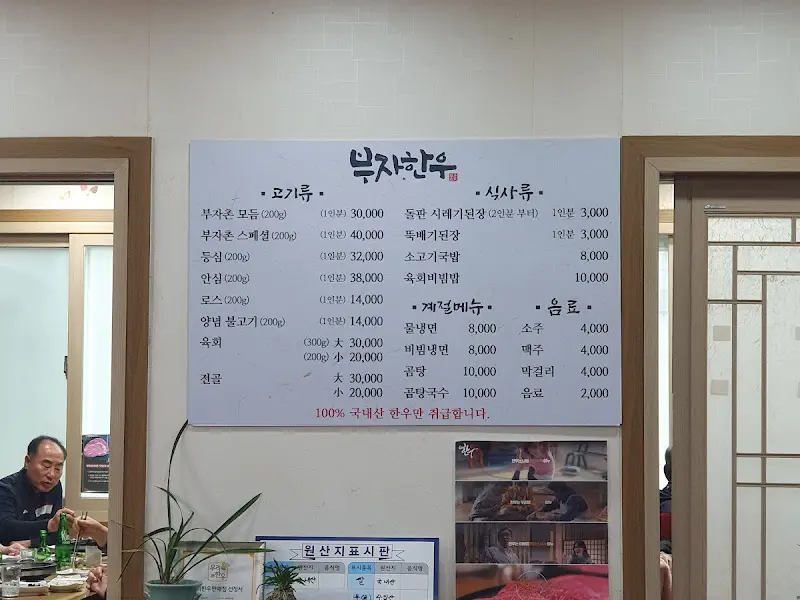 부자한우
고기류
부자촌 모듬 (200g) (1인분) 30,000
부자촌 스페셜 (200g) (1인분) 40,000
등심 (200g) (1인분) 32,000
안심 (200g) (1인분) 38,000
로스 (200g) (1인분) 14,000
양념 불고기 (200g) (1인분) 14,000
육회 (300g) 大 30,000
(200g) 小 20,000
전골 大 30,000
小 20,000
식사류
돌판 시레기된장 (2인분 부터) 1인분 3,000
뚝배기된장 1인분 3,000
소고기국밥 8,000
육회비빔밥 10,000
계절메뉴
물냉면 8,000
비빔냉면 8,000
곰탕 10,000
곰탕국수 10,000
음료
소주 4,000
맥주 4,000
막걸리 4,000
음료 2,000
100% 국내산 한우만 취급합니다.
원산지표시판
원산지 음식명 표시품목 원산지 음식명
쌀 국내산